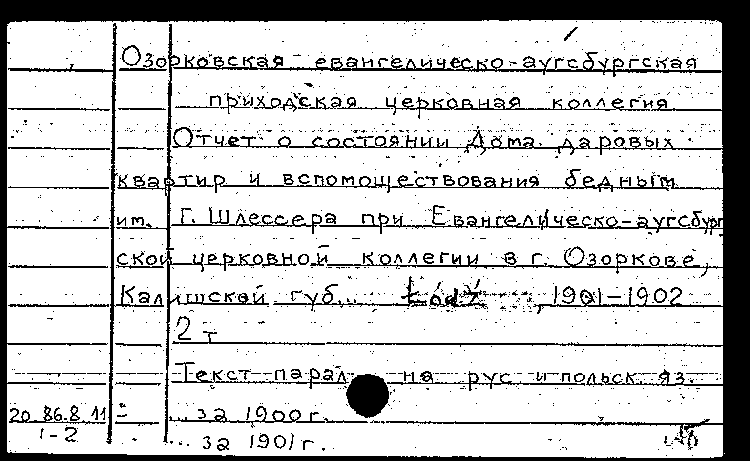 Озорковская евангелическо-аугсбургская
приходская церковная коллегия
Отчет о состоянии Дома даровых
квартир и вспомоществования бедным
им. Г. Шлессера при Евангелическо-аугсбург
ской церковной коллегии в г. Озоркове,
Калишской губ... Łódź, 1901-1902
2 т
Текст парал на рус и польск яз.
20.86.8.11 - ... за 1900 г.
1-2 ... за 1901 г.